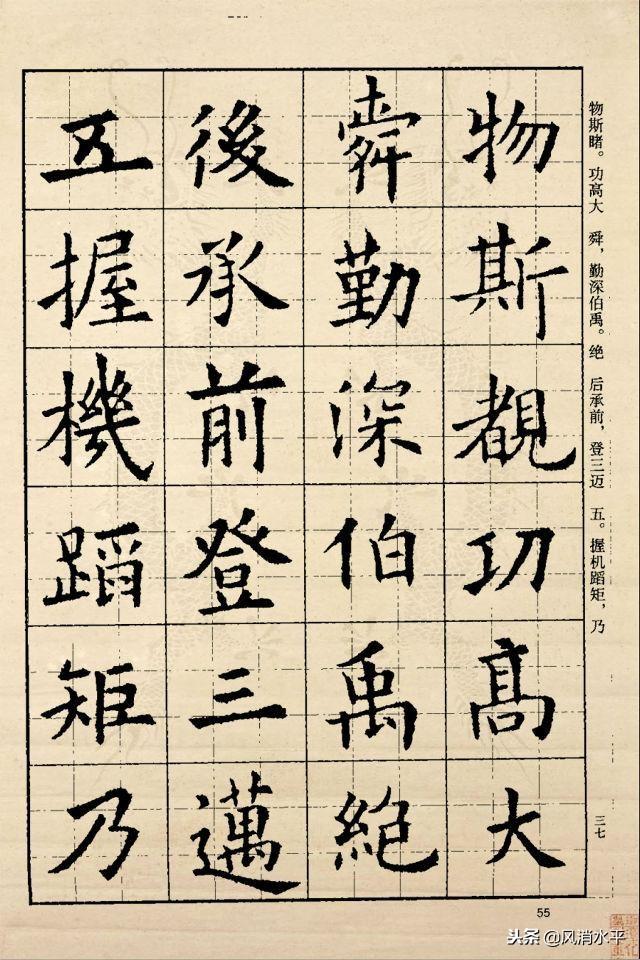 物斯覩功高大
舜勤深伯禹絶
後承前登三邁
五握機蹈矩乃
物斯睹。功高大 舜，勤深伯禹。绝 后承前，登三迈 五。握机蹈矩，乃
三七
55
头条 @风消水平